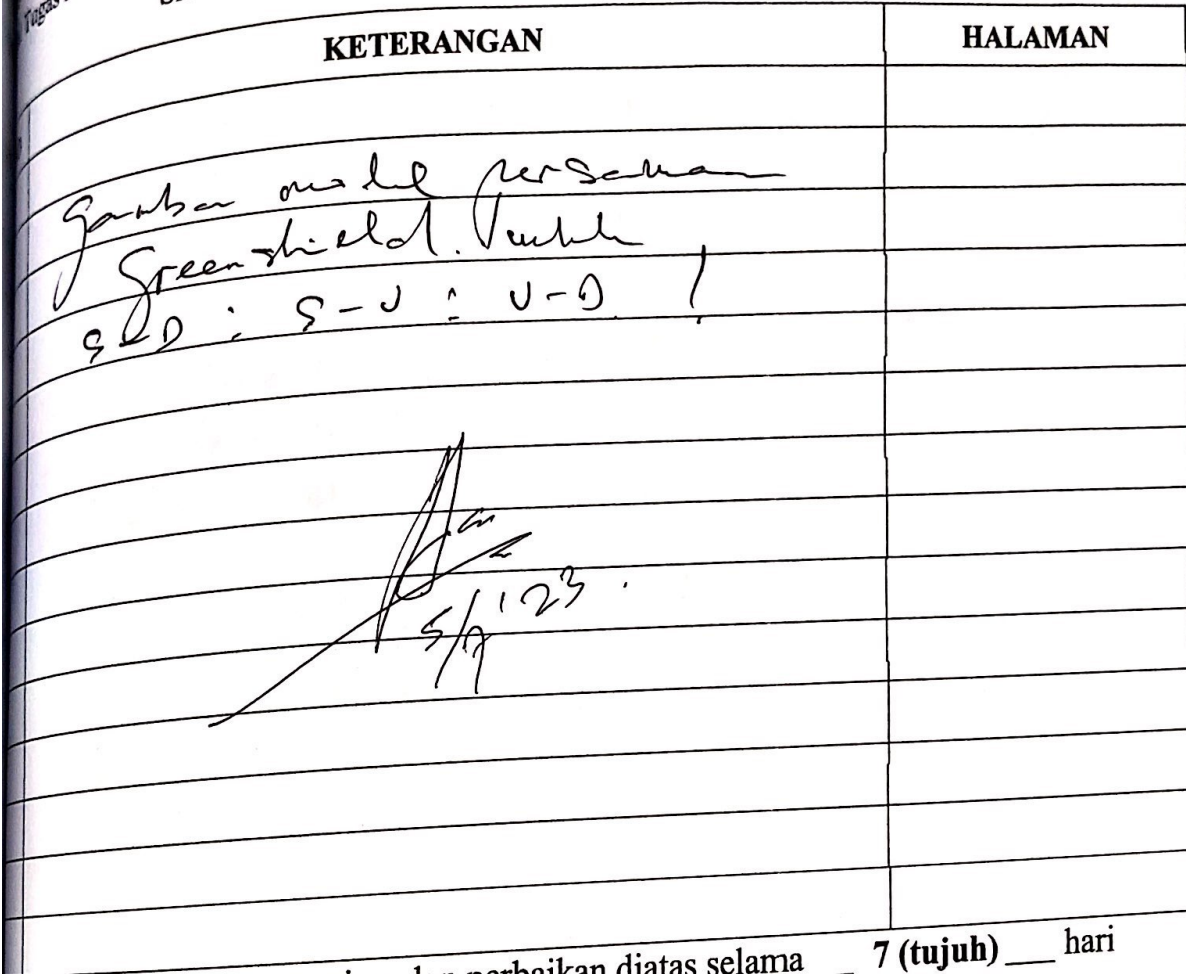 KETERANGAN HALAMAN
Gambar model persamaan
Greenshield. Untuk
S-D ; S-V ; V-D !
5/7 '23.
perbaikan diatas selama __ 7 (tujuh) __ hari